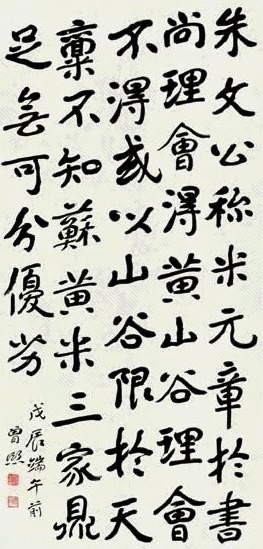 朱文公称米元章於書
尚理會得黄山谷理會
不得或以山谷限於天
稟不知蘇黄米三家鼎
足無可分優劣
戊辰端午前
曾熙